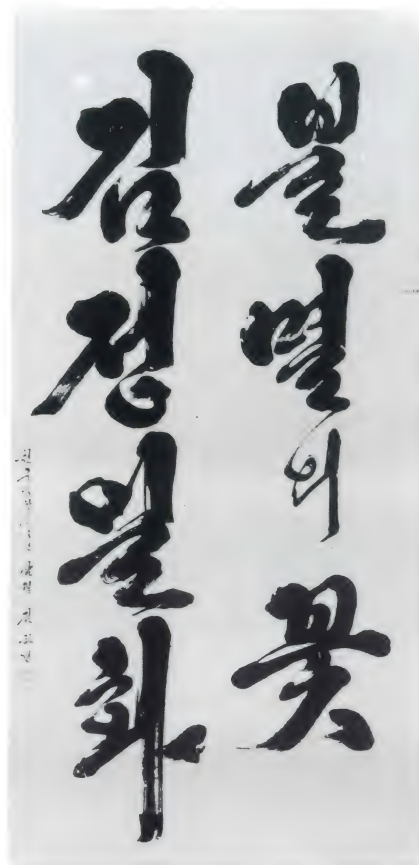 불멸의 꽃
김정일화